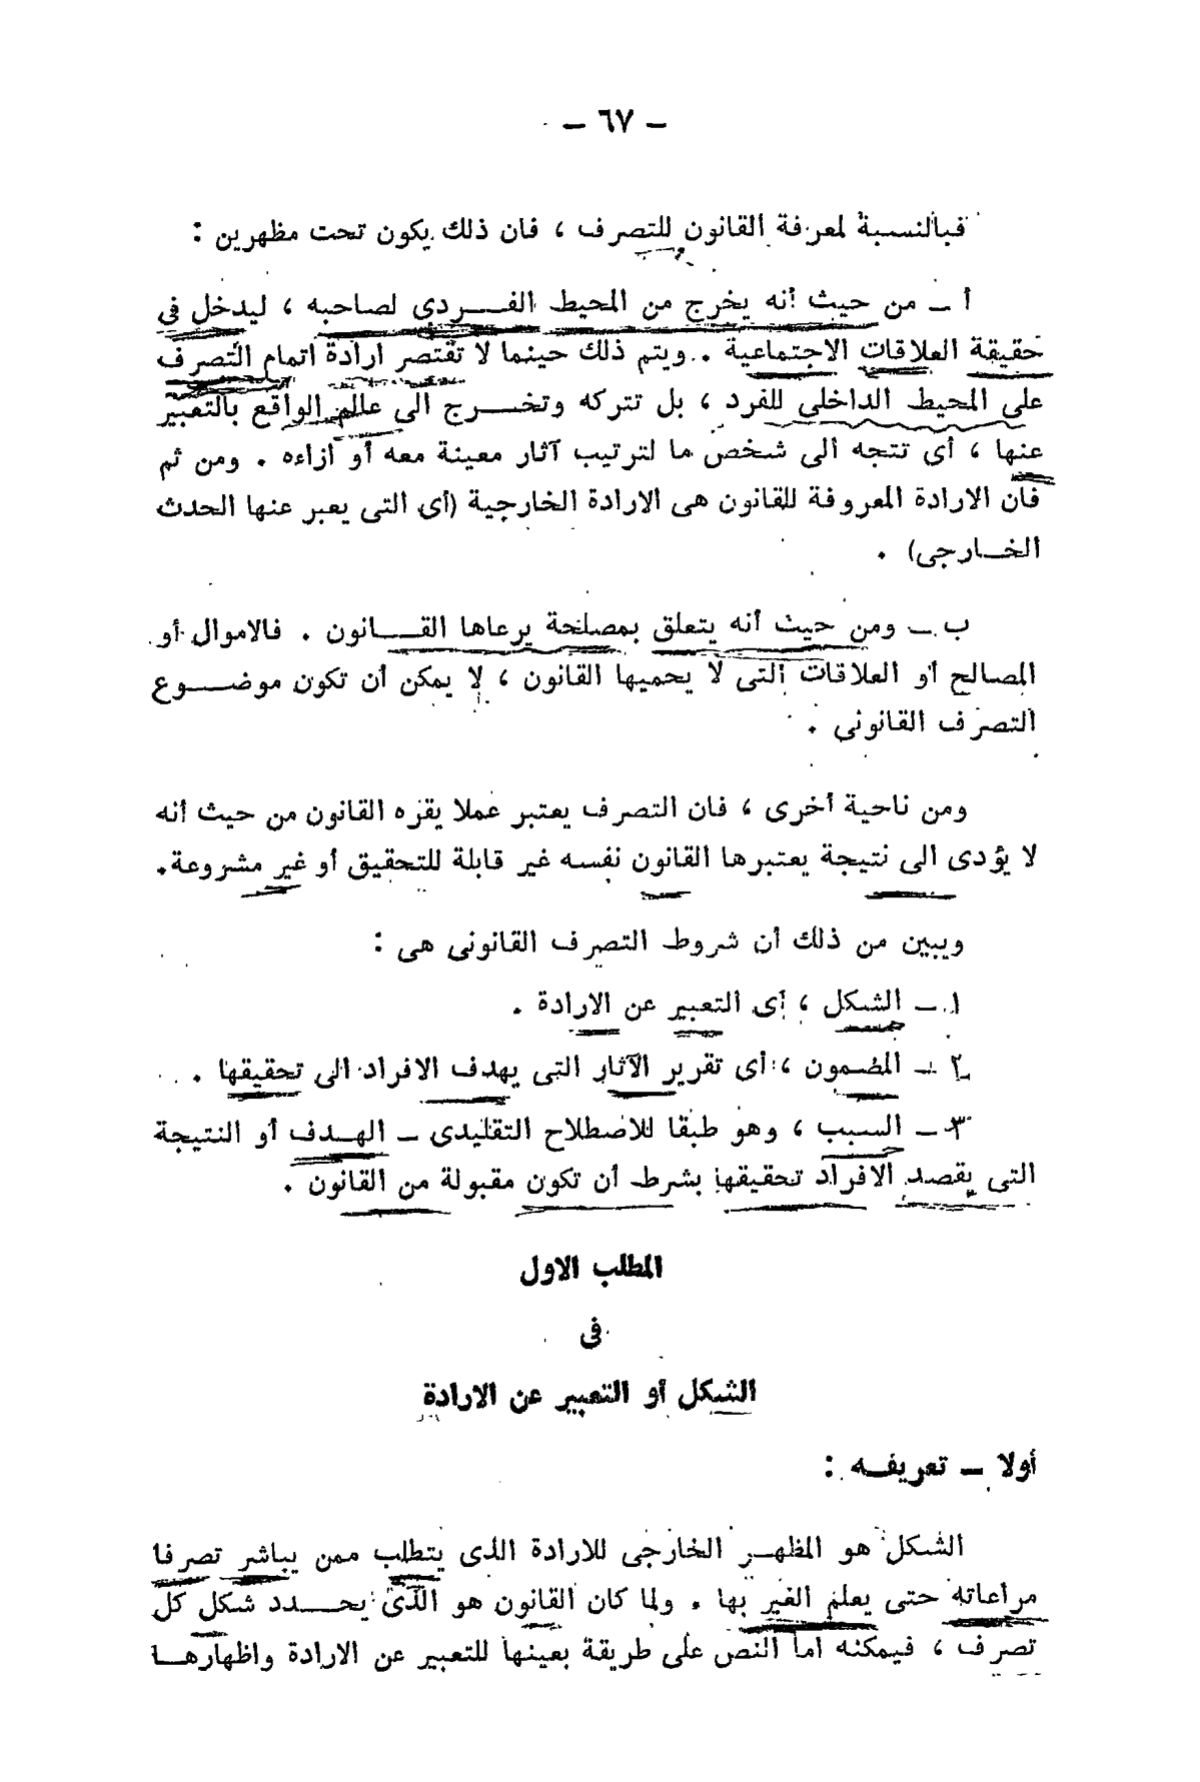 – ٦٧ –
فبالنسبة لمعرفة القانون للتصرف ، فان ذلك يكون تحت مظهرين :
أ – من حيث أنه يخرج من المحيط الفردى لصاحبه ، ليدخل فى
حقيقة العلاقات الاجتماعية . ويتم ذلك حينما لا تقتصر ارادة اتمام التصرف
على المحيط الداخلى للفرد ، بل تتركه وتخرج الى عالم الواقع بالتعبير
عنها ، أى تتجه الى شخص ما لترتيب آثار معينة معه أو ازاءه . ومن ثم
فان الارادة المعروفة للقانون هى الارادة الخارجية (أى التى يعبر عنها الحدث
الخارجى) .
ب – ومن حيث أنه يتعلق بمصلحة يرعاها القانون . فالاموال أو
المصالح أو العلاقات التى لا يحميها القانون ، لا يمكن أن تكون موضوع
التصرف القانونى .
ومن ناحية أخرى ، فان التصرف يعتبر عملا يقره القانون من حيث أنه
لا يؤدى الى نتيجة يعتبرها القانون نفسه غير قابلة للتحقيق أو غير مشروعة .
ويبين من ذلك أن شروط التصرف القانونى هى :
١ – الشكل ، أى التعبير عن الارادة .
٢ – المضمون ، أى تقرير الآثار التى يهدف الافراد الى تحقيقها .
٣ – السبب ، وهو طبقا للاصطلاح التقليدى – الهدف أو النتيجة
التى يقصد الافراد تحقيقها بشرط أن تكون مقبولة من القانون .
المطلب الاول
فى
الشكل أو التعبير عن الارادة
أولا – تعريفه :
الشكل هو المظهر الخارجى للارادة الذى يتطلب ممن يباشر تصرفا
مراعاته حتى يعلم الغير بها . ولما كان القانون هو الذى يحدد شكل كل
تصرف ، فيمكنه اما النص على طريقة بعينها للتعبير عن الارادة واظهارها